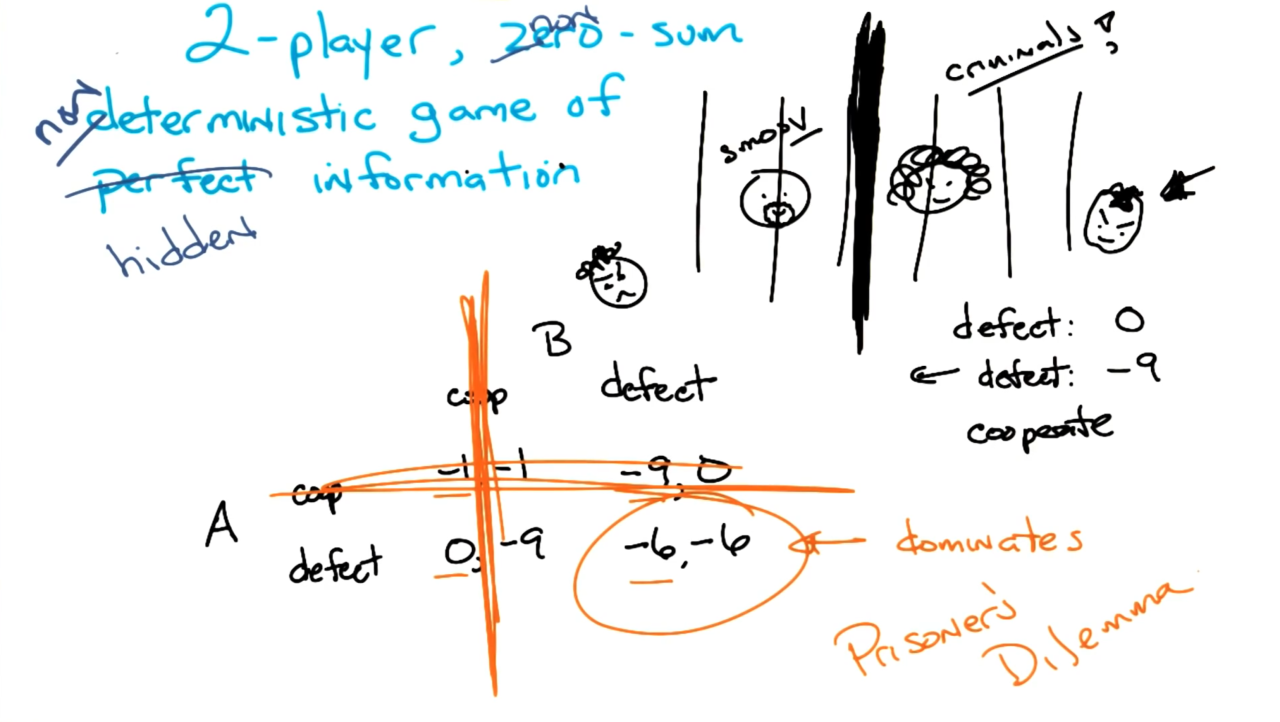 2-player, non zero-sum
non deterministic game of
perfect information
hidden
criminals?
smoov
B
coop defect
A
coop -1, -1 -9, 0
defect 0, -9 -6, -6
defect: 0
← defect: -9
cooperate
← dominates
Prisoner's
Dilemma